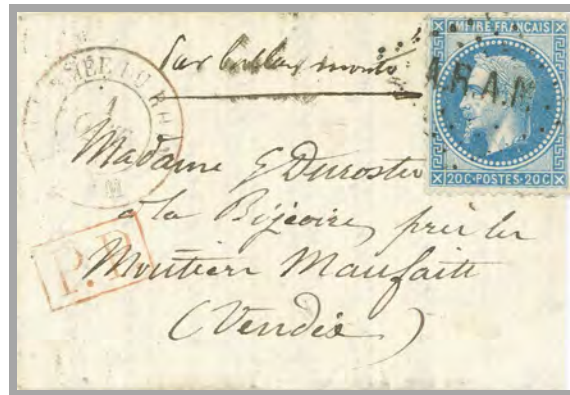 Par ballon monté
EMPIRE FRANÇAIS
A.R.A.M
20C·POSTES·20C
ARMÉE DU RH
1
Madame G Durostu
à la Bijeoire, près les
Moutiers Maufaits
P.P.
(Vendée)